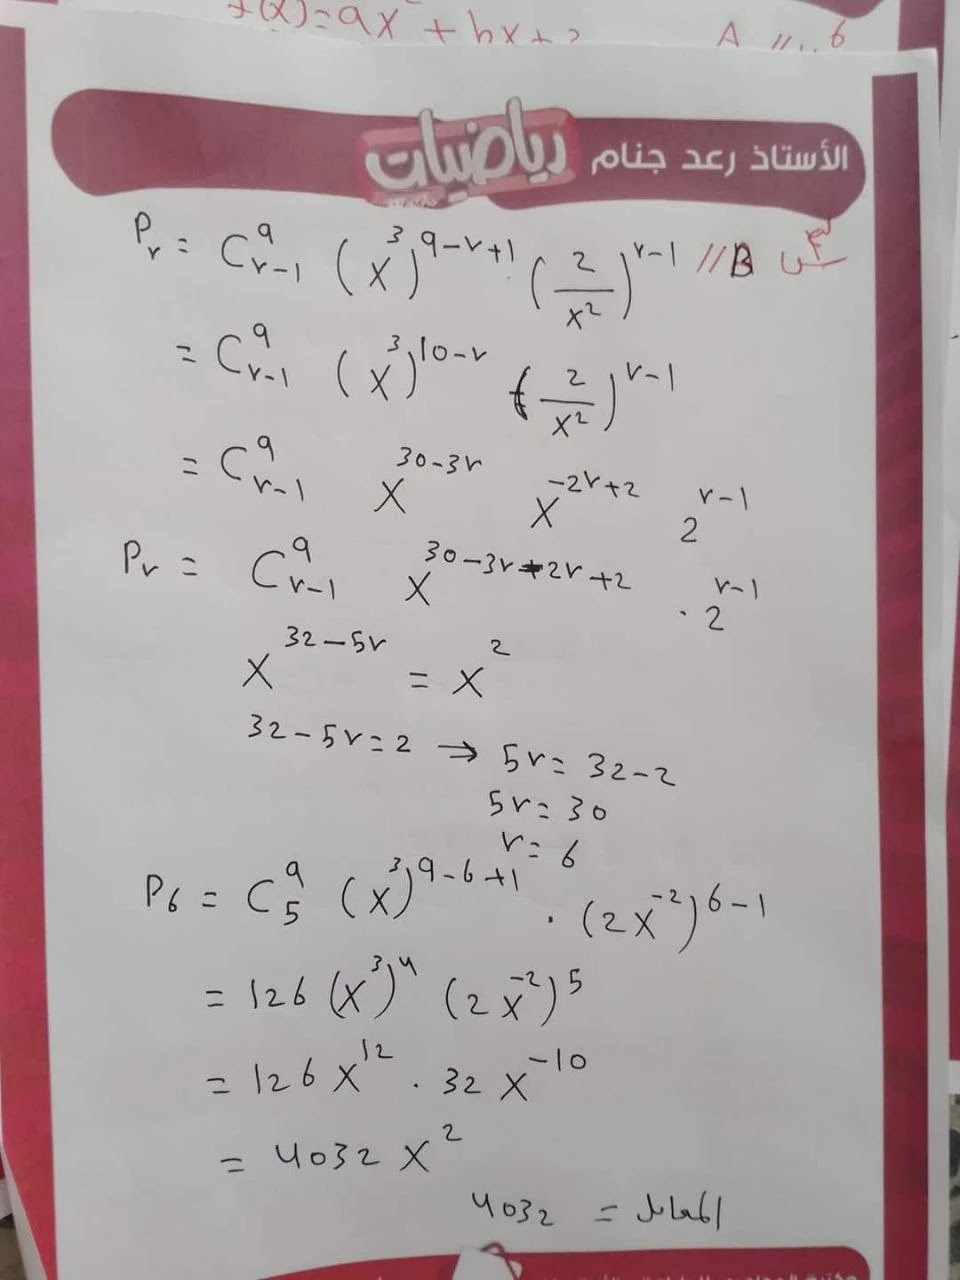 f(x)=ax² + bx+3 A // 6
الأستاذ رعد جنام رياضيات
س٣ B // Pr = C⁹r-1 (x³)^9-r+1 . (2/x²)^r-1
= C⁹r-1 (x³)^10-r (2/x²)^r-1
= C⁹r-1 x^30-3r x^-2r+2 2^r-1
Pr = C⁹r-1 x^30-3r-2r+2 . 2^r-1
x^32-5r = x²
32-5r=2 ⇒ 5r=32-2
5r=30
r=6
P6 = C⁹5 (x³)^9-6+1 . (2x⁻²)^6-1
= 126 (x³)⁴ (2x⁻²)⁵
= 126 x¹² . 32 x⁻¹⁰
= 4032 x²
المعامل = 4032